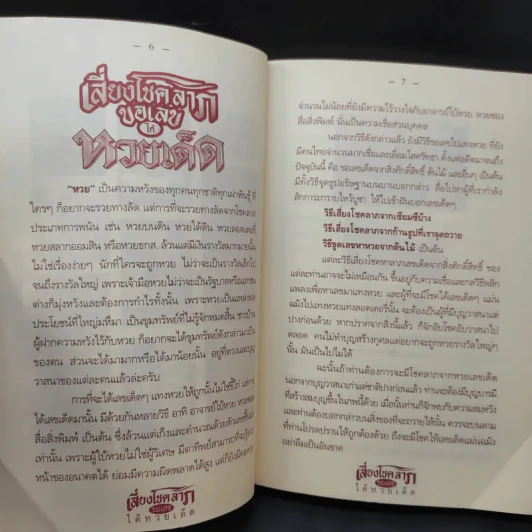 — 6 —
เสี่ยงโชคลาภ
ขอเลข
ให้
หวยเด็ด
"หวย" เป็นความหวังของทุกคนทุกชาติทุกเผ่าพันธุ์ ที่
ใครๆ ก็อยากจะรวยทางลัด แต่การที่จะรวยทางลัดจากโชคลาภ
ประเภทการพนัน เช่น หวยบนดิน หวยใต้ดิน หวยลอตเตอรี่
หวยสลากออมสิน หรือหวยธกส. ล้วนแต่มีเงินรางวัลมากมายนั้น
ไม่ใช่เรื่องง่ายๆ นักที่ใครจะถูกหวย ไม่ว่าจะเป็นรางวัลเล็กไป
จนถึงรางวัลใหญ่ เพราะเจ้ามือหวยไม่ว่าจะเป็นรัฐบาลหรือเอกชน
ต่างก็มุ่งหวังและต้องการกำไรทั้งนั้น เพราะหวยเป็นแหล่งผล
ประโยชน์ที่ใหญ่มหึมา เป็นขุมทรัพย์ที่ไม่รู้จักหมดสิ้น ชาวบ้าน
ผู้ฝากความหวังไว้กับหวย ก็อยากจะได้ขุมทรัพย์ดังกล่าวมาเป็น
ของตน ส่วนจะได้มามากหรือได้มาน้อยนั้น อยู่ที่ดวงและบุญ
วาสนาของแต่ละคนแล้วล่ะครับ
การที่จะได้เลขเด็ดๆ แทงหวยให้ถูกนั้นไม่ใช่ขี้ไก่ แต่การ
ได้เลขเด็ดมานั้น มีด้วยกันหลายวิธี อาทิ อาจารย์ใบ้หวย หวยซอง
สื่อสิ่งพิมพ์ เป็นต้น ซึ่งล้วนแต่เก็งและคำนวณด้วยตัวเลขขึ้นมา
เท่านั้น เพราะผู้ใบ้หวยไม่ใช่ผู้วิเศษ มีตาทิพย์สามารถที่จะรู้ล่วง
หน้าของอนาคตได้ ย่อมมีความผิดพลาดได้สูง แต่ก็ยังมีคน
เสี่ยงโชคลาภ
ขอเลข
ได้หวยเด็ด
— 7 —
จำนวนไม่น้อยที่ยังมีความไว้วางใจกับอาจารย์ใบ้หวย หวยซอง
สื่อสิ่งพิมพ์ นั่นเป็นความเชื่อส่วนบุคคล
นอกจากวิธีดังกล่าวแล้ว ยังมีวิธีขอเลขไปแทงหวย ที่ยัง
มีคนไทยจำนวนมากเชื่อและเลื่อมใสศรัทธา ตั้งแต่อดีตมาจนถึง
ปัจจุบันนี้ คือ ขอเลขเด็ดจากสิ่งศักดิ์สิทธิ์ ต้นไม้ และอื่นๆ เป็นต้น
มีทั้งวิธีจุดธูปอธิษฐานบนบานบอกกล่าว สื่อไปหาผู้ที่เรากำลัง
สักการะกราบไหว้บูชา ให้ไปเข้าฝันบอกเลขเด็ดๆ
วิธีเสี่ยงโชคลาภจากเซียมซีบ้าง
วิธีเสี่ยงโชคลาภจากก้านธูปที่เราจุดถวาย
วิธีขูดเลขหาหวยจากต้นไม้ เป็นต้น
แต่ละวิธีเสี่ยงโชคหาลาภเลขเด็ดจากสิ่งศักดิ์สิทธิ์ ของ
แต่ละท่านอาจจะไม่เหมือนกัน ขึ้นอยู่กับความเชื่อและกลวิธีพลิก
แพลงเพื่อหาเลขมาแทงหวย และผู้ที่จะมีโชคได้เลขเด็ดๆ แม่นๆ
ฉมังไปแทงหวยแทงลอตเตอรี่นั้น จะต้องเป็นผู้ที่มีบุญวาสนาแต่
ปางก่อนด้วย หากปราศจากสิ่งนี้แล้ว ก็จักลับโชคอับวาสนาไป
ตลอด คนไม่ทำบุญสร้างกุศลแต่อยากจะถูกหวยรางวัลใหญ่ๆ
นั้น มันเป็นไปไม่ได้
ฉะนั้นถ้าท่านต้องการจะมีโชคลาภจากหวยเลขเด็ด
นอกจากบุญวาสนาเก่าแต่ชาติปางก่อนแล้ว ท่านจะต้องมีบุญบารมี
ที่สร้างสมบุญขึ้นในภพนี้ด้วย เมื่อนั้นท่านก็จักพบกับความสมหวัง
และท่านต้องบอกกล่าวบนสิ่งของที่จะถวายให้นั้น ควรจะบนตาม
ที่ท่านโปรดปรานให้ถูกต้องด้วย ถึงจะมีโชคให้เลขเด็ดแม่นฉมัง
อย่าลืมเป็นอันขาด
เสี่ยงโชคลาภ
ขอเลข
ได้หวยเด็ด